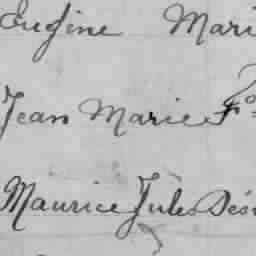 Eugène Mari
Jean Marie Fº
Maurice Jules Dési